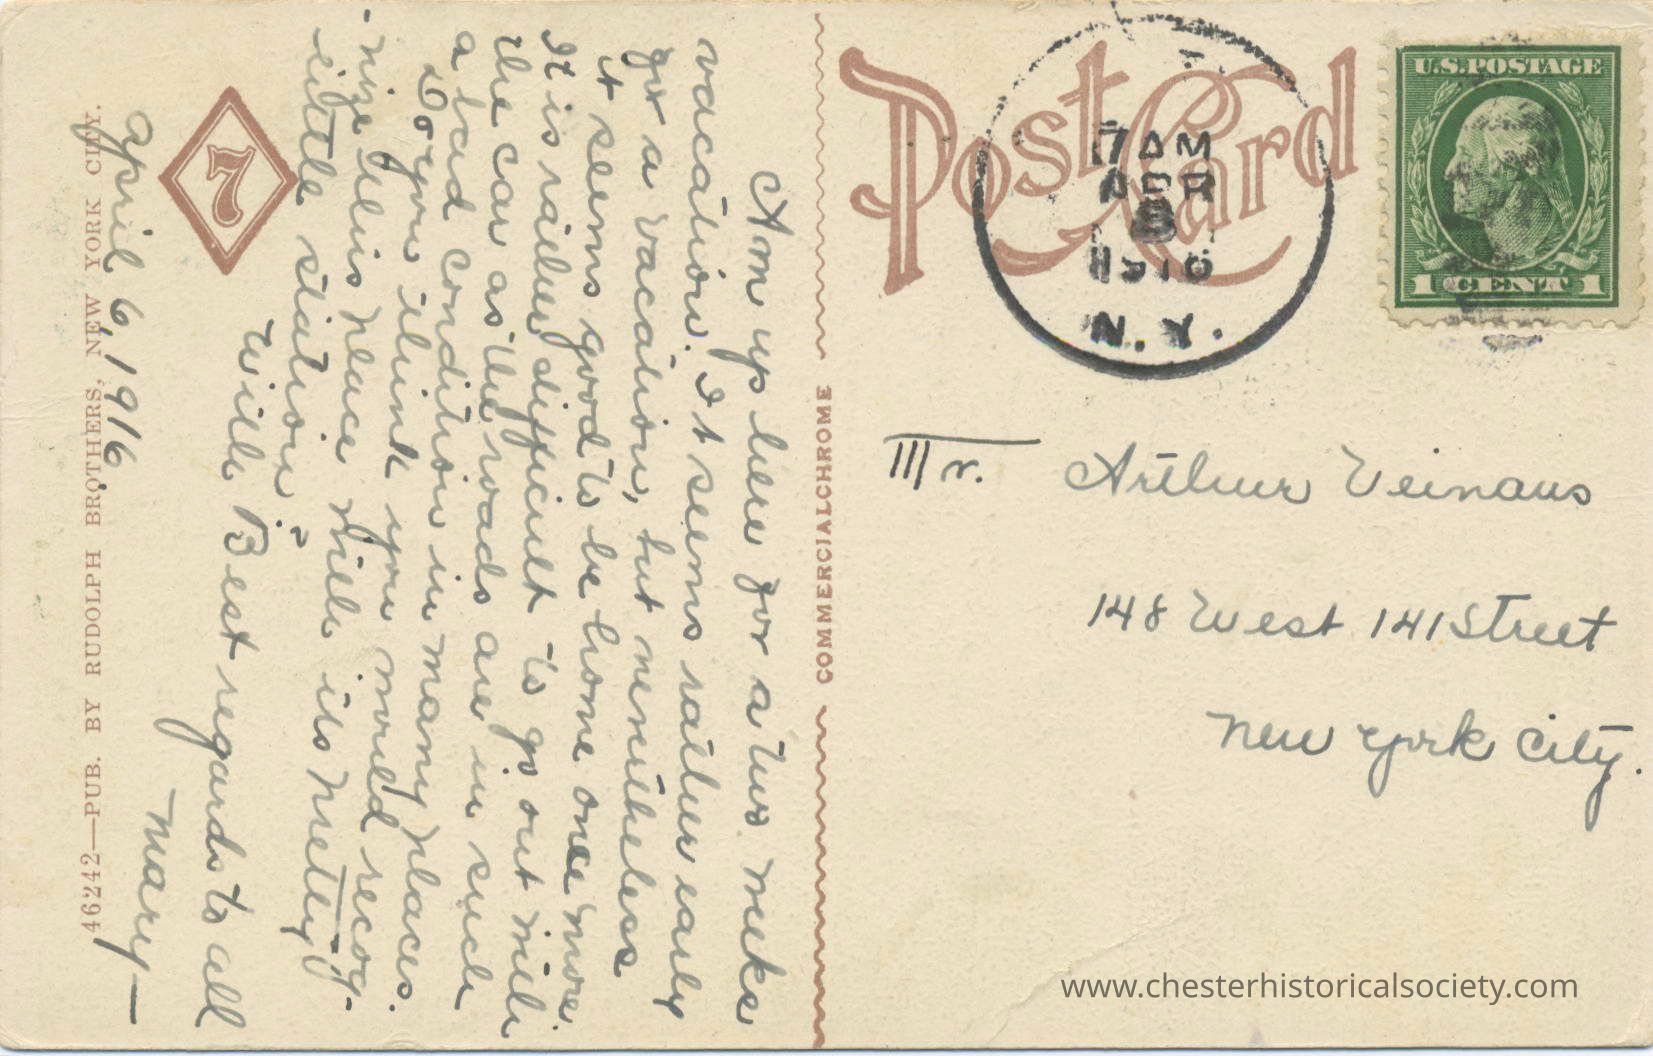 Am up here for a two weeks
vacation. It seems rather early
for a vacation, but nevertheless
it seems good to be home once more.
It is rather difficult to go out with
the car as the roads are in such
a bad condition in many places.
Do you think you would recog-
nize this place with its "pretty
little station"?
With Best regards to all
Mary—
April 6, 1916.
7
46242—PUB. BY RUDOLPH BROTHERS, NEW YORK CITY.
COMMERCIALCHROME
Post Card
7 AM
APR
1916
N. Y.
U.S. POSTAGE
1 CENT 1
Mr. Arthur Veinaus
148 West 141 Street
New York City.
www.chesterhistoricalsociety.com